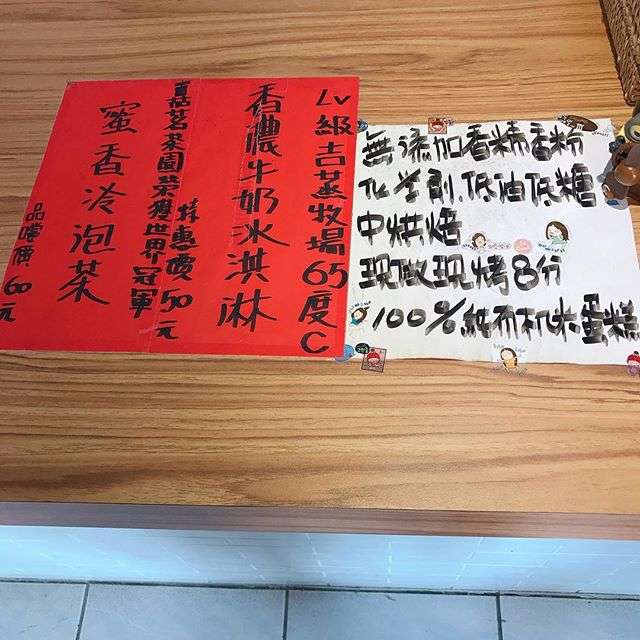 LV級吉蒸牧場65度C
香濃牛奶冰淇淋
特惠價50元
嘉茗茶園榮獲世界冠軍
蜜香冷泡茶
品嚐價60元
無添加香精香粉
化学劑.低油低糖
中烘焙
現做現烤8分
100%純有机米蛋糕